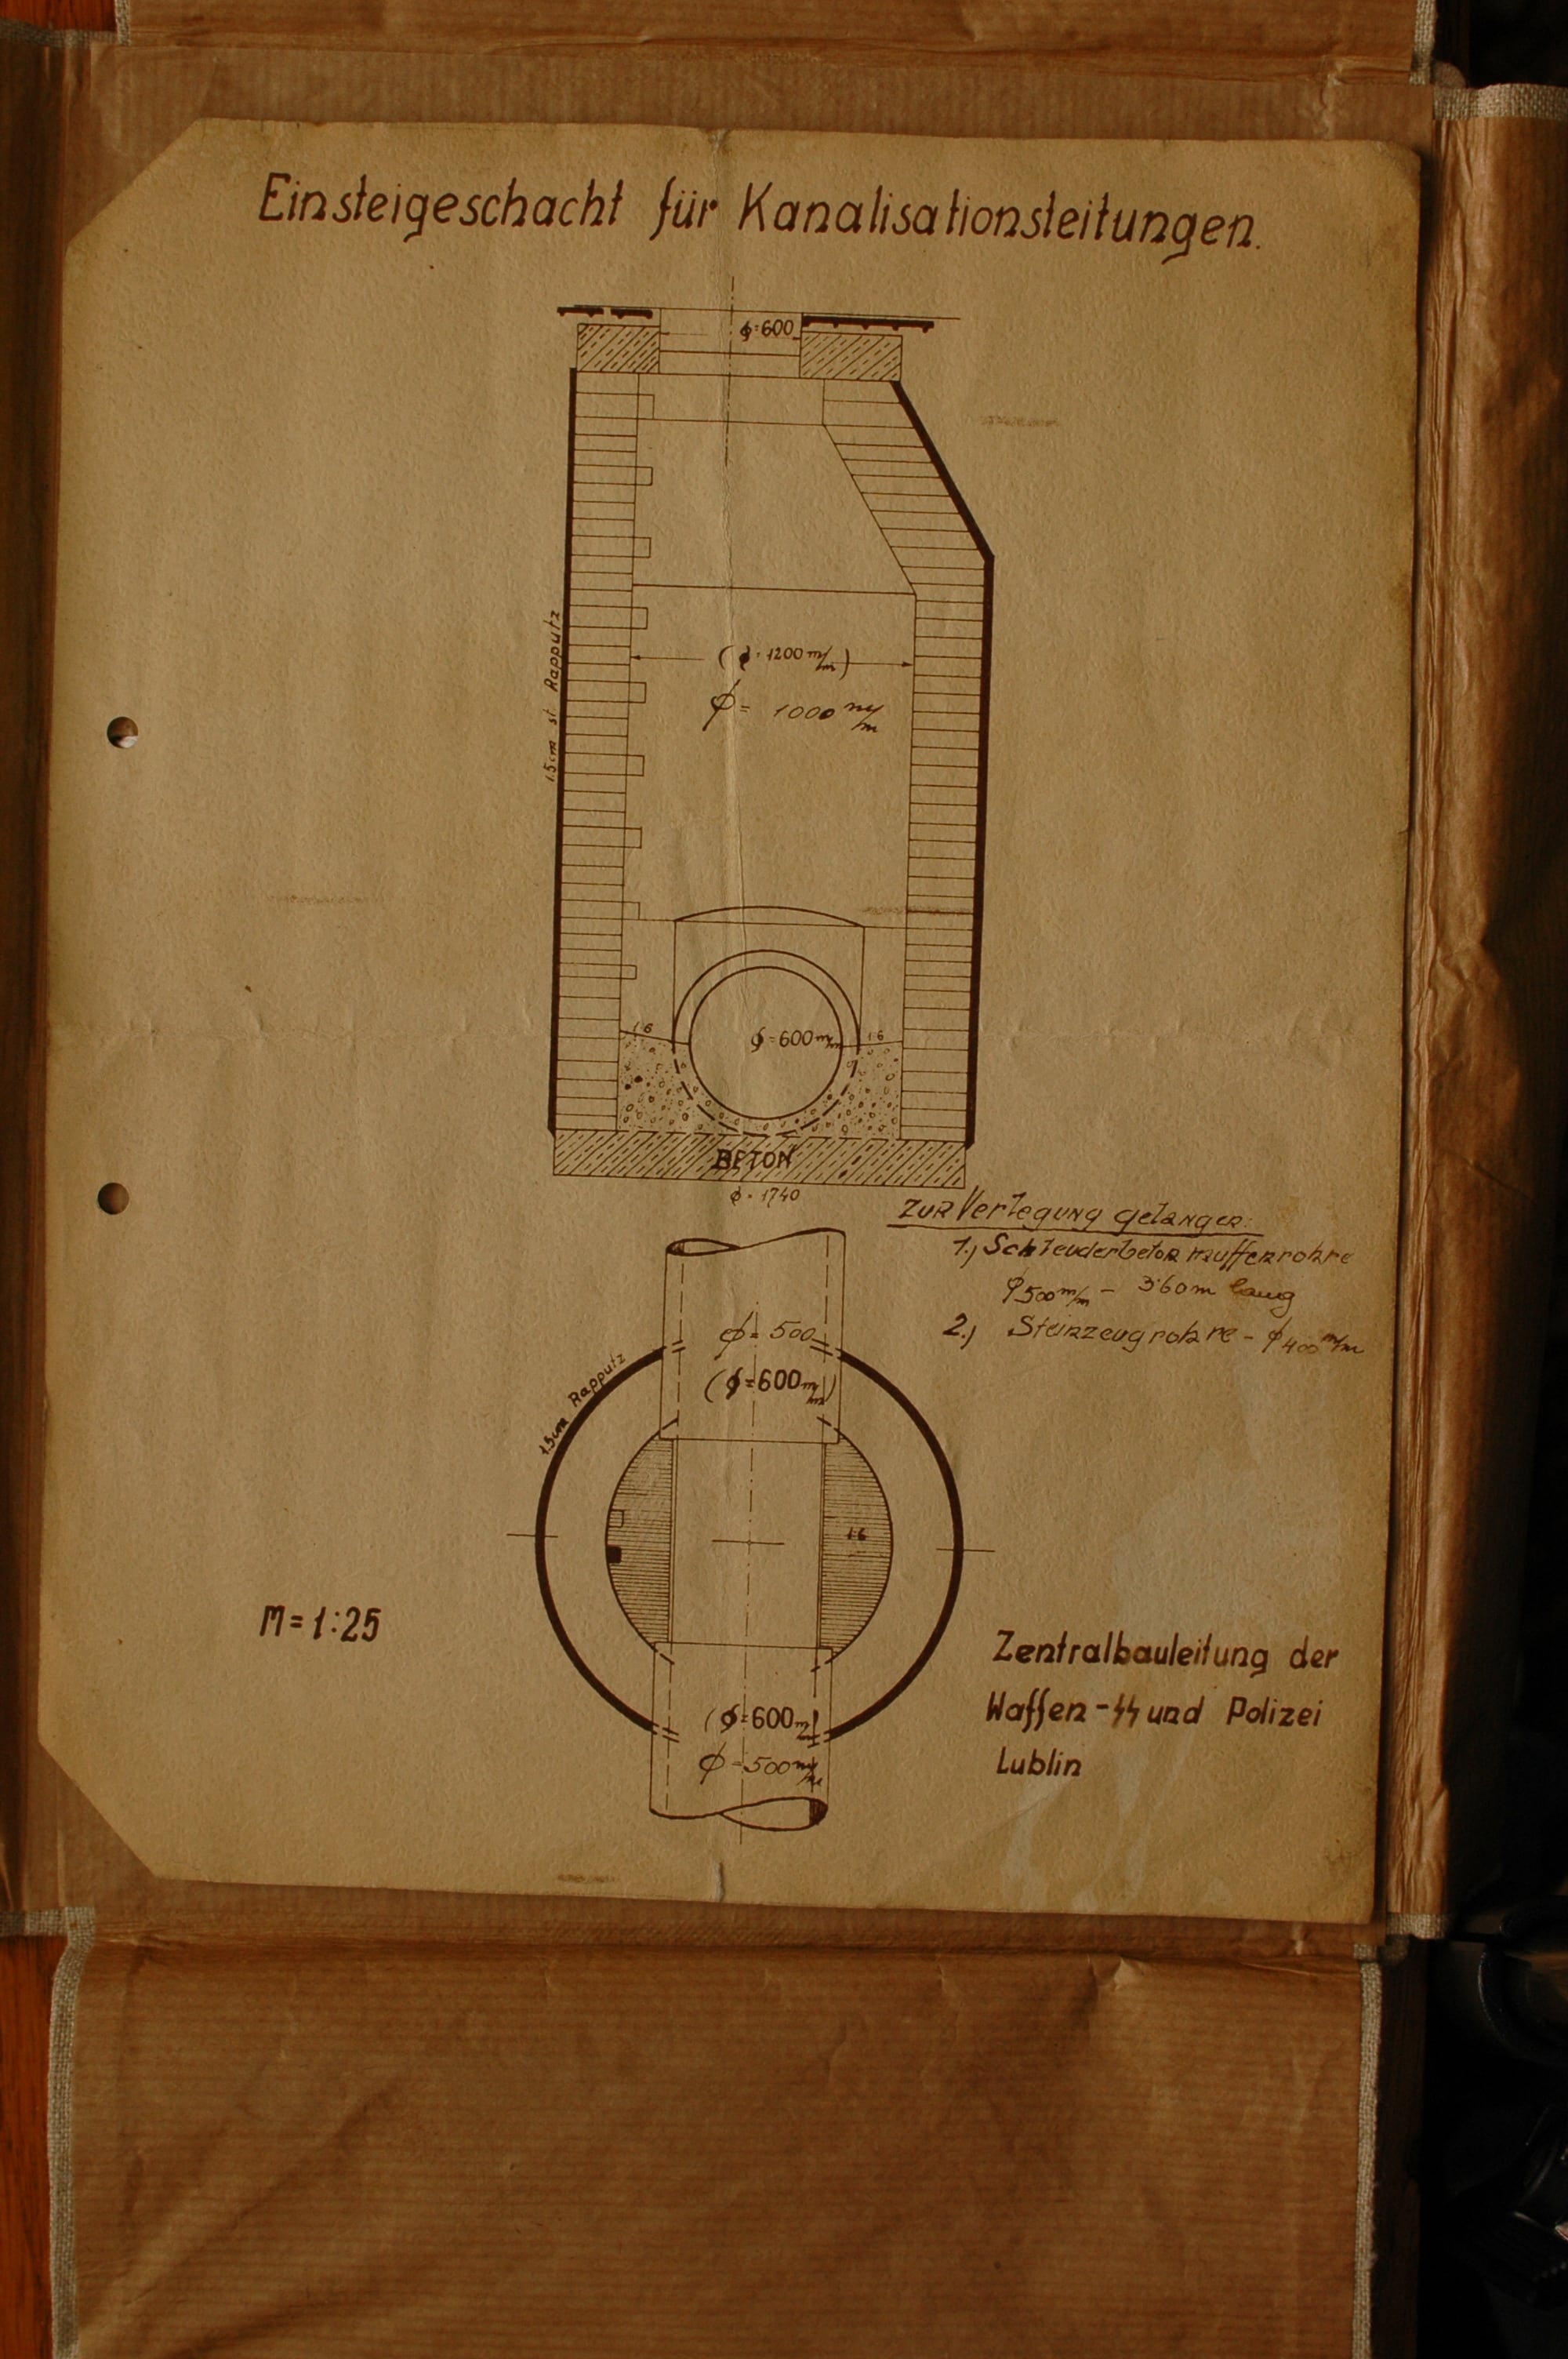 Einsteigeschacht für Kanalisationsleitungen.
ϕ=600
1.5cm st. Rapputz
(ϕ=1200 m/m)
ϕ= 1000 m/m
1:6
ϕ=600 m/m
1:6
BETON
ϕ=1740
Zur Verlegung gelangen:
1.) Schleuderbetonmuffenrohre
ϕ 500 m/m - 3·60 m lang
2.) Steinzeugrohre - ϕ 400 m/m
ϕ=500
(ϕ=600 m/m)
1.5cm Rapputz
1:6
M=1:25
Zentralbauleitung der
Waffen-ᛋᛋ und Polizei
Lublin
(ϕ=600 m/m)
ϕ=500 m/m